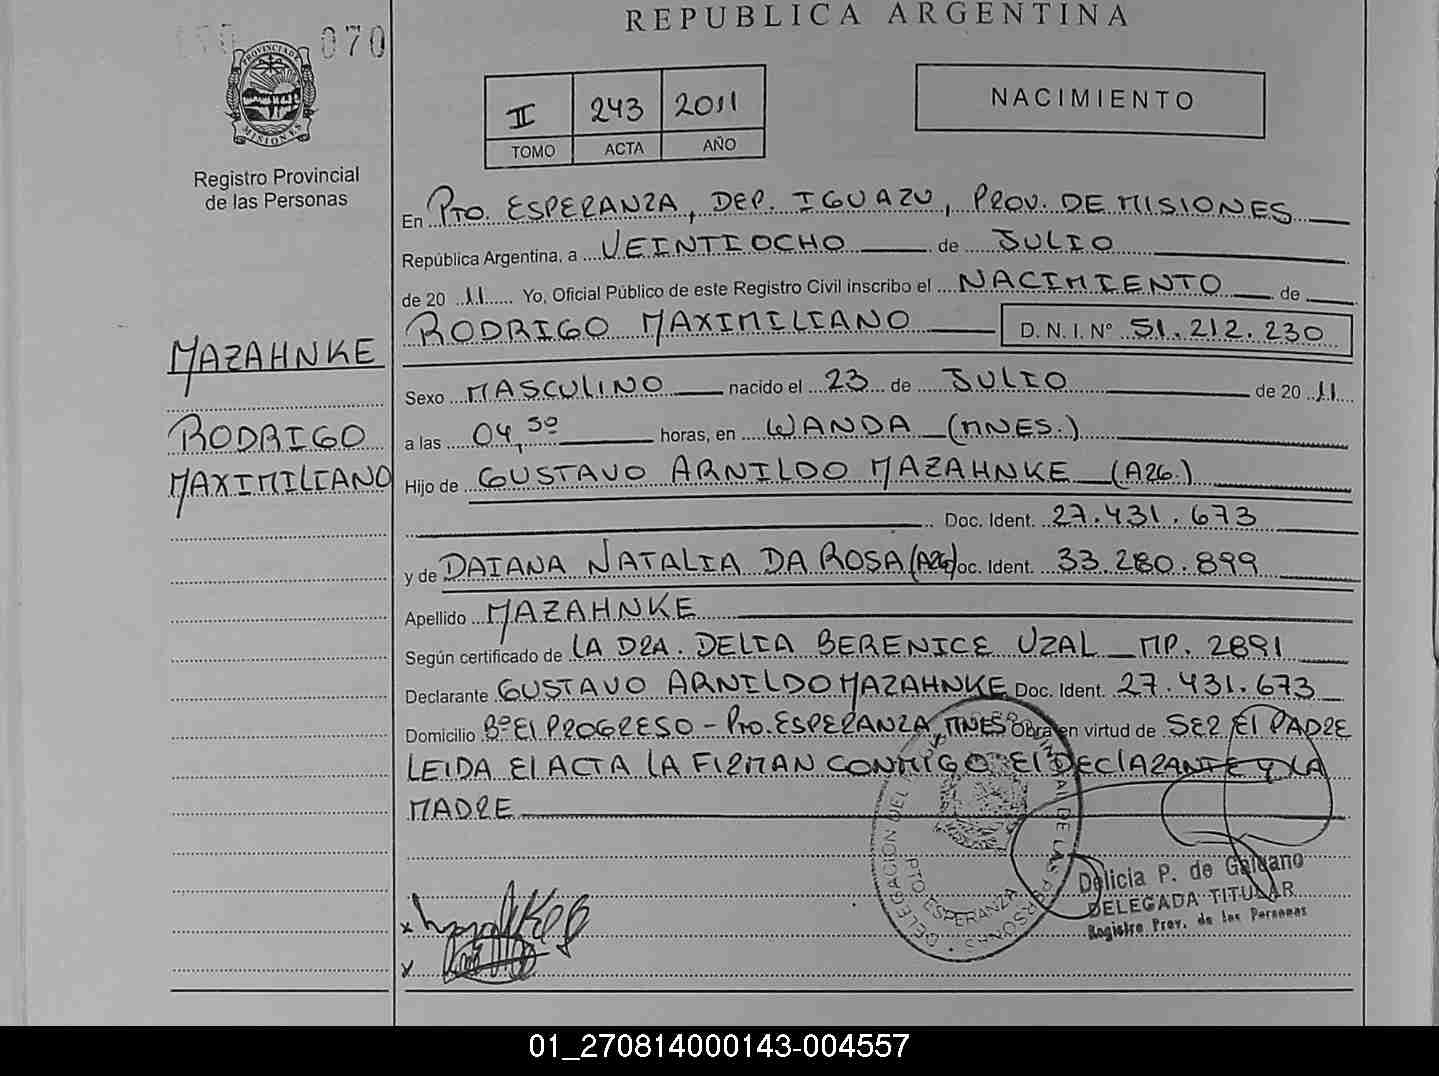 070
PROVINCIA DE
MISIONES
Registro Provincial
de las Personas
MAZAHNKE
RODRIGO
MAXIMILIANO
REPUBLICA ARGENTINA
II 243 2011
TOMO ACTA AÑO
NACIMIENTO
En PTO. ESPERANZA, DEP. IGUAZU, PROV. DE MISIONES
República Argentina, a VEINTIOCHO de JULIO
de 20 11 Yo, Oficial Público de este Registro Civil inscribo el NACIMIENTO de
RODRIGO MAXIMILIANO D.N.I. Nº 51.212.230
Sexo MASCULINO nacido el 23 de JULIO de 20 11
a las 04,50 horas, en WANDA (MNES.)
Hijo de GUSTAVO ARNILDO MAZAHNKE (A26.)
Doc. Ident. 27.431.673
y de DAIANA NATALIA DA ROSA (A26) oc. Ident. 33.280.899
Apellido MAZAHNKE
Según certificado de LA DRA. DELIA BERENICE UZAL MP. 2891
Declarante GUSTAVO ARNILDO MAZAHNKE Doc. Ident. 27.431.673
Domicilio Bº El PROGRESO - PTO. ESPERANZA, MNES Obra en virtud de SER El PADRE
LEIDA El ACTA LA FIRMAN CONMIGO El DEClARANTE Y LA
MADRE
DELEGACION DEL
DE LAS PERSONAS
PTO. ESPERANZA
Delicia P. de
DELEGADA TITULAR
Registro Prov. de las Personas
01_270814000143-004557